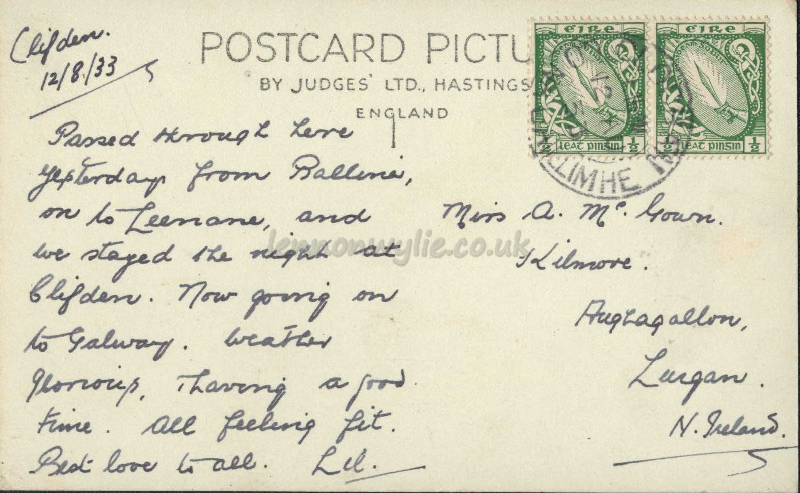 Clifden.
12/8/33
POSTCARD PICTU
BY JUDGES' LTD., HASTINGS
ENGLAND
EIRE
½ leat pinsin ½
EIRE
½ leat pinsin ½
LIMHE
Passed through here
yesterday from Ballina,
on to Leenane, and
we stayed the night at
Clifden. Now going on
to Galway. Weather
glorious, & having a good
time. All feeling fit.
Best love to all. Lil.
Miss A. Mc Gown.
Kilmore.
Aughagallon,
Lurgan.
N. Ireland.
lennonwylie.co.uk